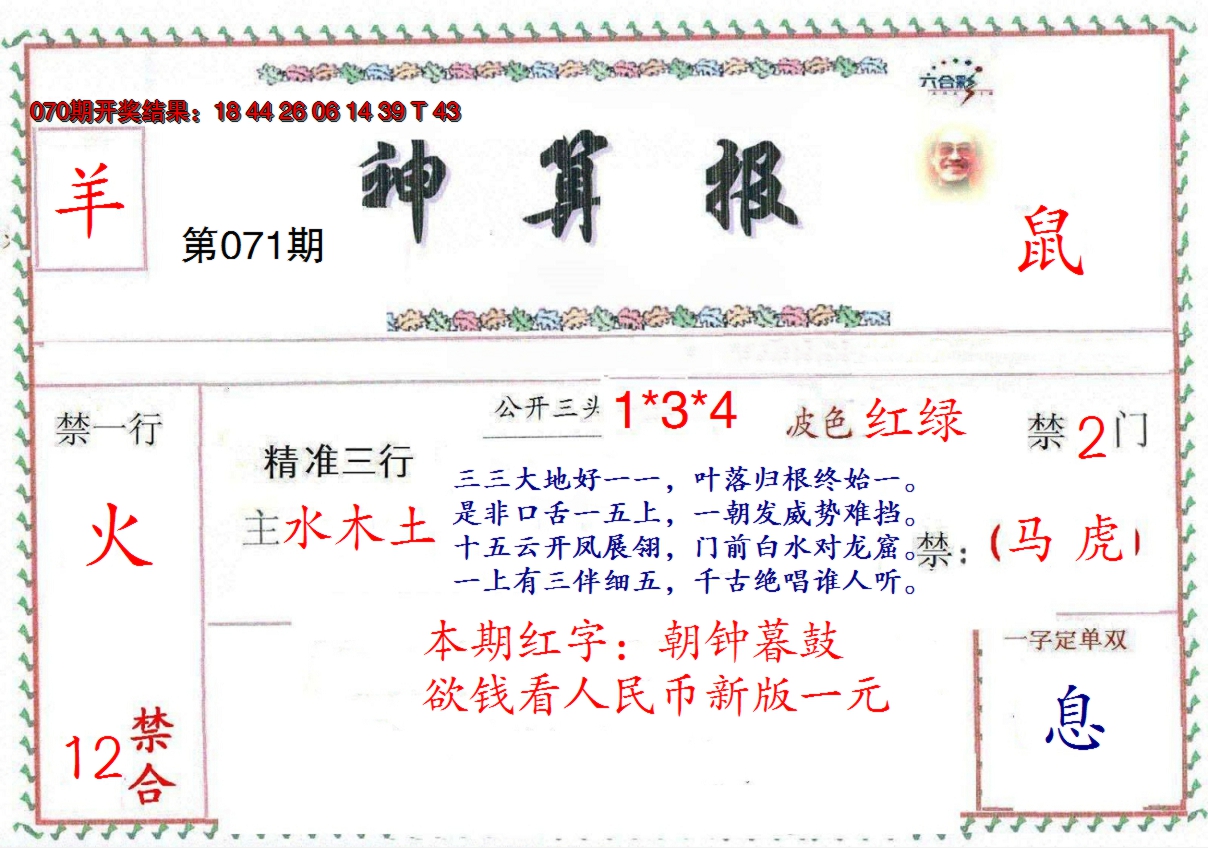 六合彩
070期开奖结果：18 44 26 06 14 39 T 43
神算报
羊
第071期
鼠
禁一行
火
12禁合
精准三行
主水木土
公开三头 1*3*4
波色 红绿
禁2门
三三大地好一一，叶落归根终始一。
是非口舌一五上，一朝发威势难挡。
十五云开凤展翎，门前白水对龙窟。
一上有三伴细五，千古绝唱谁人听。
禁：(马 虎)
本期红字：朝钟暮鼓
欲钱看人民币新版一元
一字定单双
息